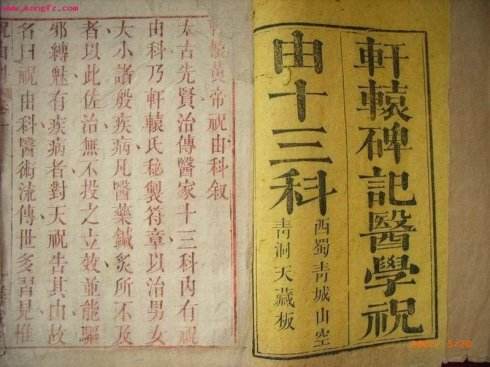 www.kongfz.com
軒轅碑記醫學祝
由十三科
西蜀青城山空
青洞天藏板
軒轅黃帝祝由科叙
太古先賢治傳醫家十三科內有祝
由科乃軒轅氏秘製符章以治男女
大小諸般疾病凡醫藥鍼炙所不及
者以此佐治無不投之立效並能驅
邪縛魅有疾病者對天祝告其由故
名曰祝由科醫術流傳世多習見惟